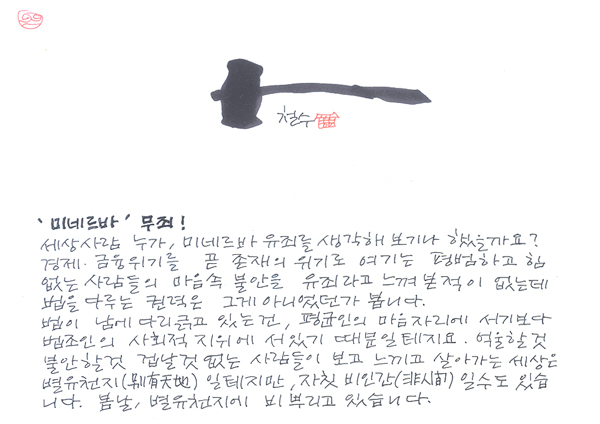 철수
'미네르바' 무죄!
세상사람 누가, 미네르바 유죄를 생각해 보기나 했을까요?
경제·금융위기를 곧 존재의 위기로 여기는 평범하고 힘
없는 사람들의 마음속 불안을 유죄라고 느껴 본적이 없는데
법을 다루는 권력은 그게 아니었던가 봅니다.
법이 남에 다리긁고 있는건, 평균인의 마음자리에 서기보다
법조인의 사회적 지위에 서있기 때문일테지요. 억울할것
불안할것 겁날것 없는 사람들이 보고 느끼고 살아가는 세상은
별유천지(別有天地) 일테지만, 자칫 비인간(非人間) 일수도 있습
니다. 봄날, 별유천지에 비 뿌리고 있습니다.